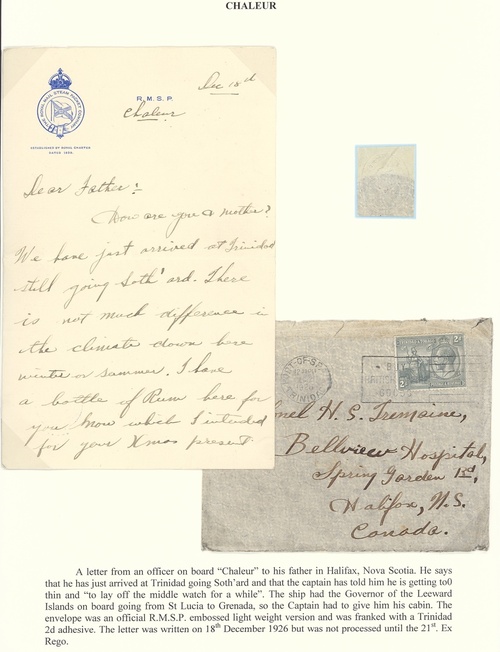 CHALEUR
Dec 18d
R.M.S.P.
Chaleur
THE ROYAL MAIL STEAM PACKET COMPANY
ESTABLISHED BY ROYAL CHARTER
DATED 1839.
Dear Father:-
How are you & mother?
We have just arrived at Trinidad
still going Soth'ard. There
is not much difference in
the climate down here
winter or summer. I have
a bottle of Rum here for
you now which I intended
for your Xmas present
2d 2d
nel H. S. Tremaine,
Bellview Hospital,
Spring Garden Rd,
Halifax, N.S.
Canada.
A letter from an officer on board “Chaleur” to his father in Halifax, Nova Scotia. He says
that he has just arrived at Trinidad going Soth’ard and that the captain has told him he is getting to0
thin and “to lay off the middle watch for a while”. The ship had the Governor of the Leeward
Islands on board going from St Lucia to Grenada, so the Captain had to give him his cabin. The
envelope was an official R.M.S.P. embossed light weight version and was franked with a Trinidad
2d adhesive. The letter was written on 18th December 1926 but was not processed until the 21st. Ex
Rego.